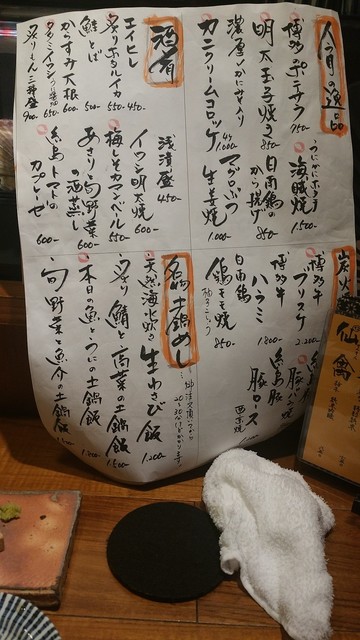 今月の逸品
博多ポテサラ 750-
うにかにホタテ
海賊焼 1,500-
明太玉子焼き 850-
日南鶏のから揚げ 850-
濃厚かにみそ入り
カニクリームコロッケ 1,000-
マグロぶつ生姜焼
酒肴
エイヒレ 450-
炙りホタルイカ 550-
鮭とば 500-
からすみ大根 600-
タタミイワシ
浅漬盛 450-
イワシ明太焼 600-
梅しそカマンベール 550-
あさりと旬野菜の酒蒸し 600-
糸島トマトのカプレーゼ 600-
炭火
博多牛ブリスケ 2,200-
博多牛ハラミ 1,800-
糸島豚
豚バラ焼
豚ロース
西京焼
日南鶏
鶏モモ焼 850-
ゆずこしょう
名物土鍋めし
御注文頂いてから
20~30分かかります
天然海水炊き 生わさび飯 1,200-
炙り鯖と高菜の土鍋飯 1,500-
本日の魚とうにの土鍋飯 1,800-
旬野菜と魚介の土鍋飯 1,500-
仙禽